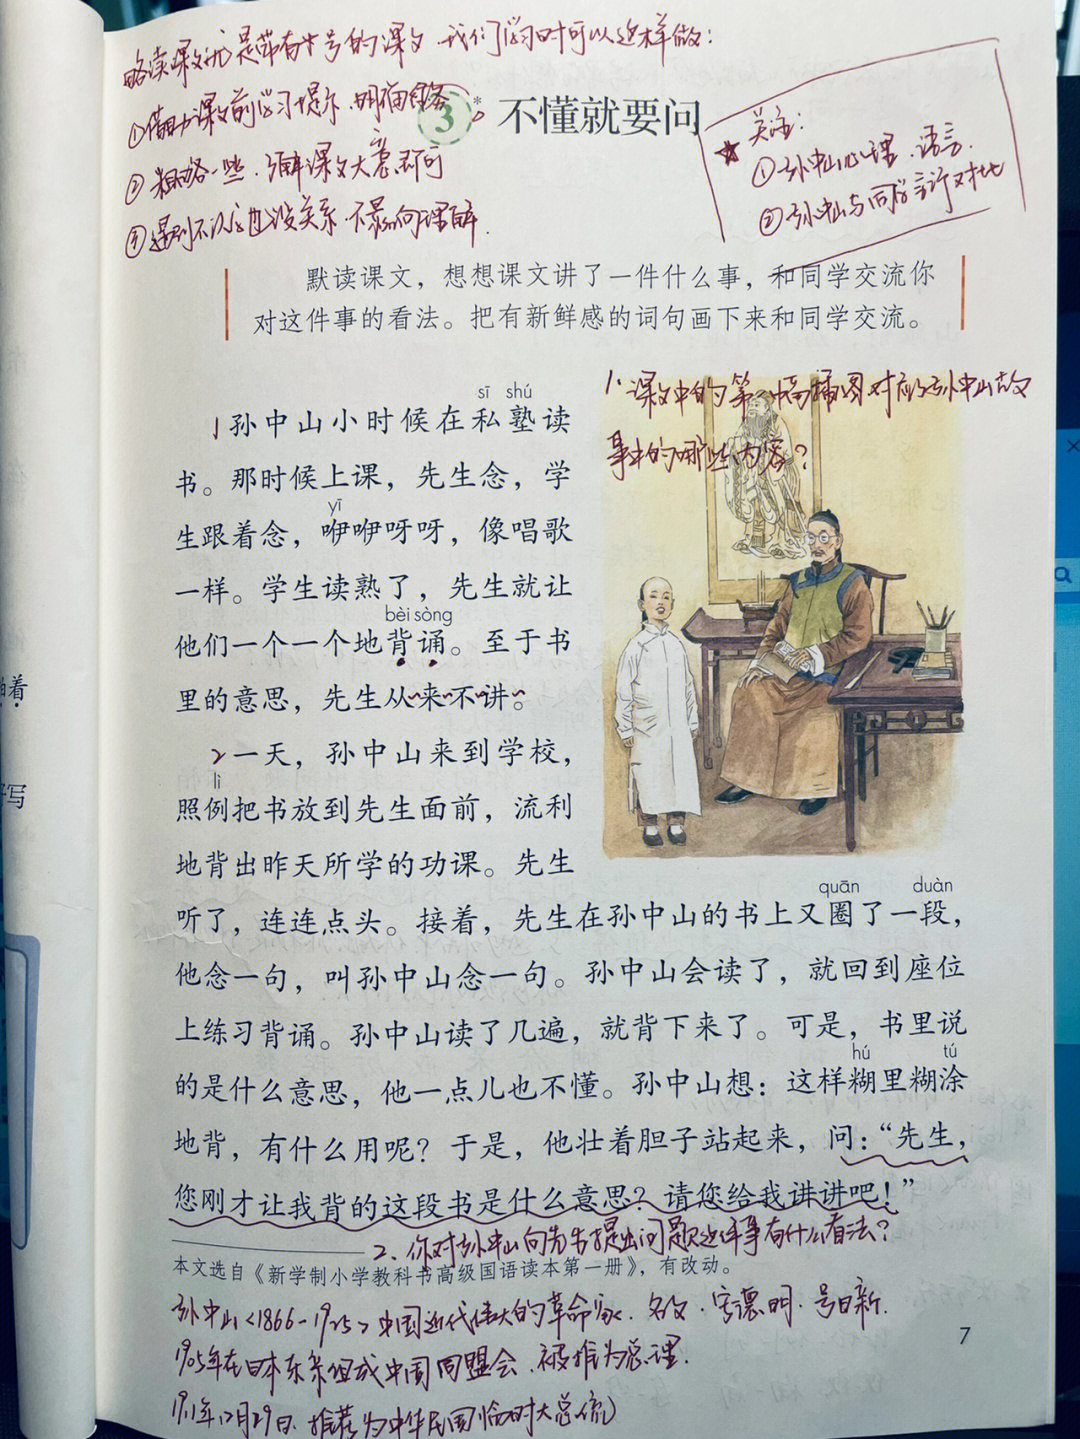 略读课文就是带有*号的课文.我们学习时可以这样做:
①借助课文前学习提示.明确任务。
②粗略一些.了解课文大意即可
③遇到不认识也没关系.不影响理解.
3* 不懂就要问
★ 关注:
①孙中山心理.语言.
②孙中山与同学言行对比
默读课文，想想课文讲了一件什么事，和同学交流你
对这件事的看法。把有新鲜感的词句画下来和同学交流。
1.课文中的第一幅插图对应了孙中山故
事中的哪些内容?
sī shú
1 孙中山小时候在私塾读
书。那时候上课，先生念，学
yī
生跟着念，咿咿呀呀，像唱歌
一样。学生读熟了，先生就让
bèi sòng
他们一个一个地背诵。至于书
里的意思，先生从来不讲。
2 一天，孙中山来到学校，
lì
照例把书放到先生面前，流利
地背出昨天所学的功课。先生
quān duàn
听了，连连点头。接着，先生在孙中山的书上又圈了一段，
他念一句，叫孙中山念一句。孙中山会读了，就回到座位
上练习背诵。孙中山读了几遍，就背下来了。可是，书里说
hú tú
的是什么意思，他一点儿也不懂。孙中山想：这样糊里糊涂
地背，有什么用呢？于是，他壮着胆子站起来，问：“先生，
您刚才让我背的这段书是什么意思？请您给我讲讲吧！”
2.你对孙中山向先生提出问题这件事有什么看法?
本文选自《新学制小学教科书高级国语读本第一册》，有改动。
孙中山<1866-1925>中国近代伟大的革命家.名文.字德明.号日新.
1905年在日本东京组成中国同盟会.被推为总理.
1911年12月29日.推荐为中华民国临时大总统)
7
着
写